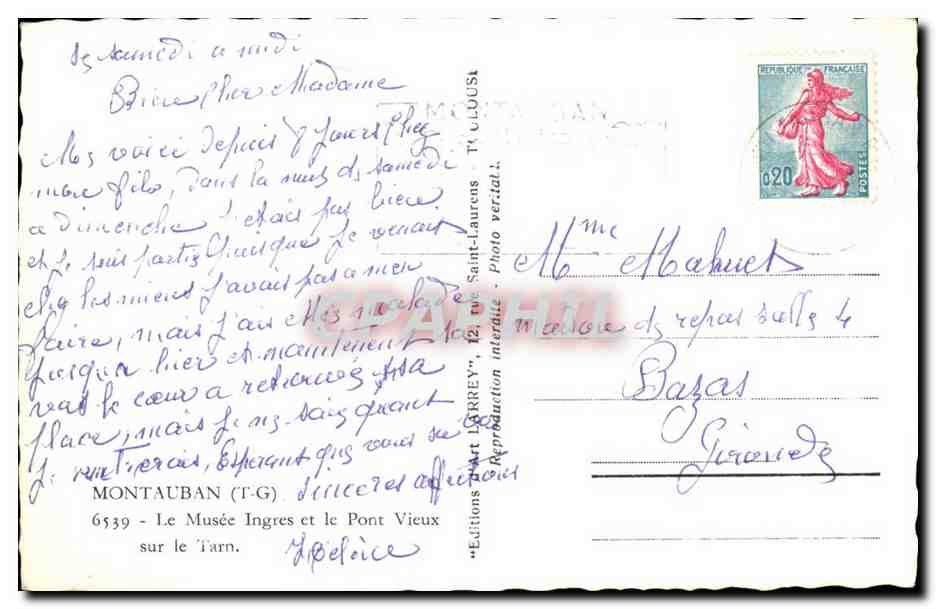 samedi a midi
Bien Cher Madame
Me voici depuis 8 Jours chez
mon filo, dans la nuit de samedi
a Dimanche J'etais pas bien
et je suis partie Puisque Je venait
chez les miens J'avais pas a m'en
faire, mais J'ais été malade
Jusqu'a hier et maintenent
le cœur a retourné sa
place, mais Je ne sais quant
Je rentrerais, Esperant que vous
sinceres affections
MONTAUBAN (T-G)
6539 - Le Musée Ingres et le Pont Vieux
sur le Tarn.
"Editions d'Art LARREY", 12, rue Saint-Laurens - TOULOUSE
Reproduction interdite - Photo véritable
REPUBLIQUE FRANÇAISE
0,20
POSTES
Mme Mahuet
Maison de repos salle 4
Bazas
Gironde
CPAPHIL